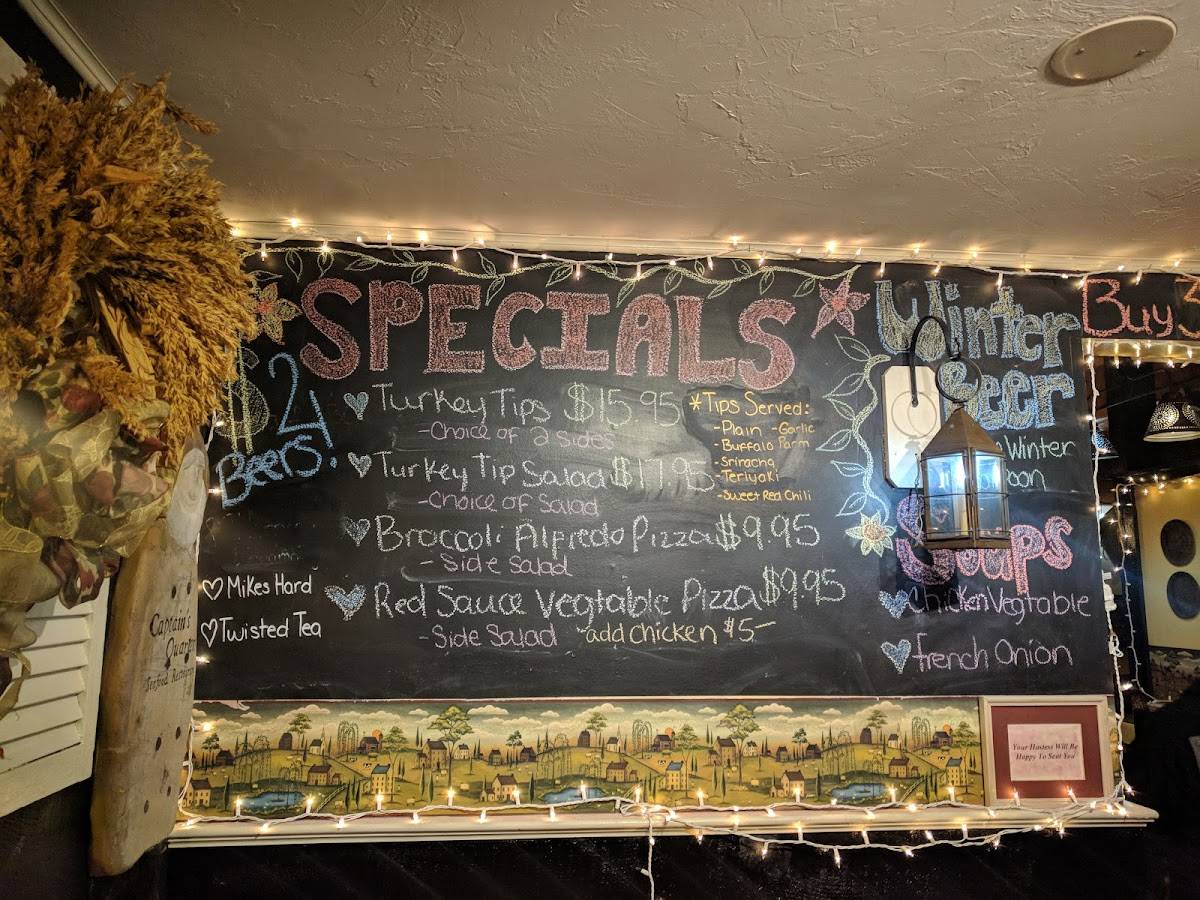 SPECIALS
$2
Beers!
Mikes Hard
Twisted Tea
Turkey Tips $15.95
-Choice of 2 sides
Turkey Tip Salad $17.95
-Choice of Salad
Broccoli Alfredo Pizza $9.95
- Side Salad
Red Sauce Vegtable Pizza $9.95
-Side Salad add chicken $5-
*Tips Served:
-Plain -Garlic
-Buffalo Parm
-Sriracha
-Teriyaki
-Sweet Red Chili
Winter
Beer
Winter
Soups
Chicken Vegtable
French Onion
Buy 3
Captain's
Your Hostess Will Be
Happy To Seat You